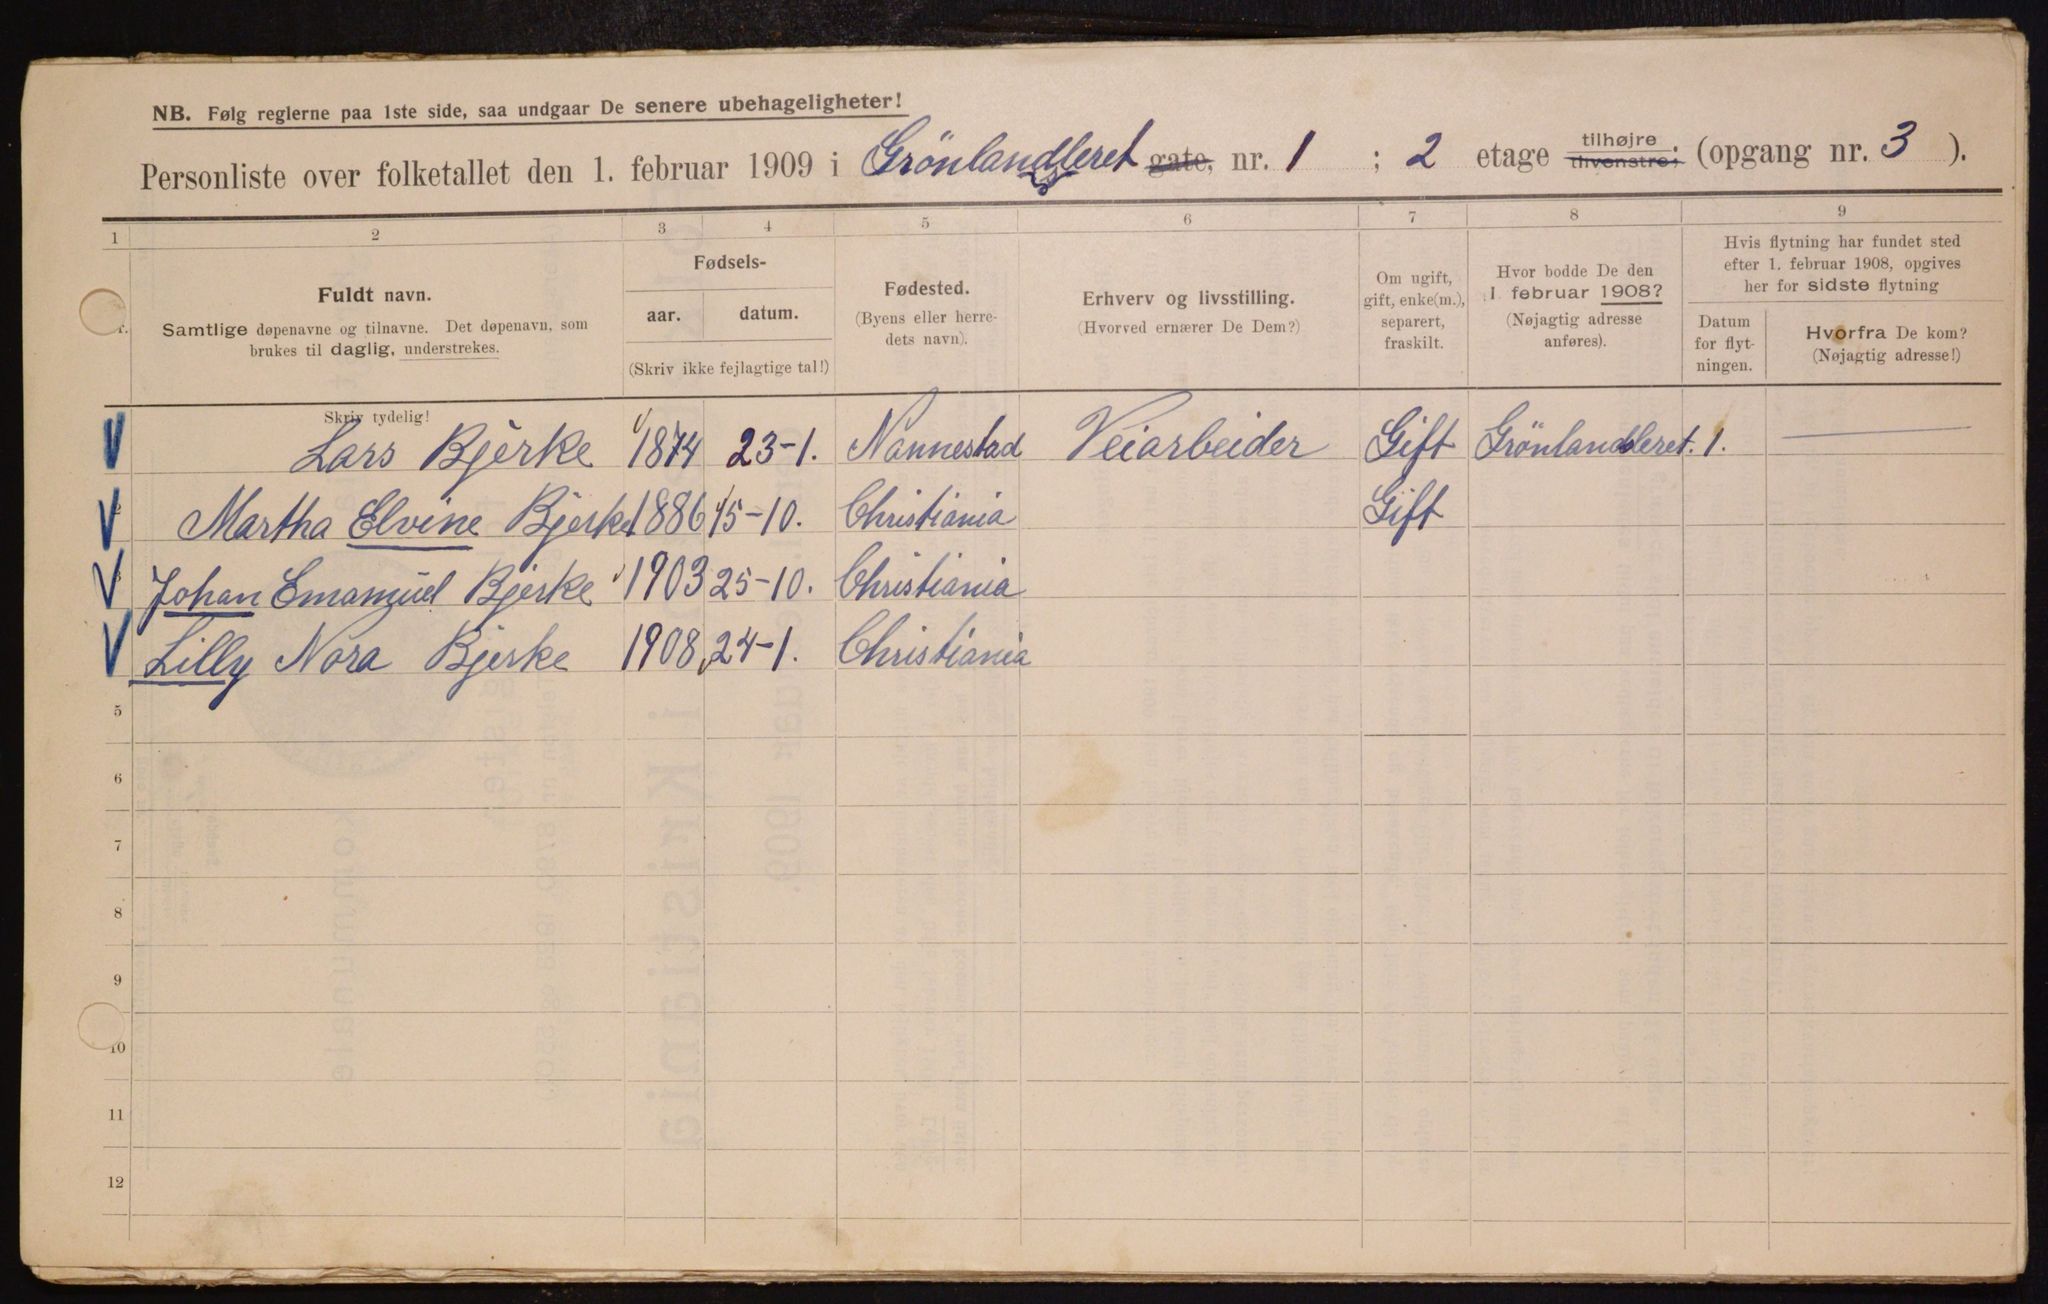 NB. Følg reglerne paa 1ste side, saa undgaar De senere ubehageligheter!
Personliste over folketallet den 1. februar 1909 i Grönlandsleret gate, nr. 1 ; 2 etage tilhøjre tilvenstre; (opgang nr. 3 ).
1 2 3 4 5 6 7 8 9
Fuldt navn.
Samtlige døpenavne og tilnavne. Det døpenavn, som
brukes til daglig, understrekes.
Fødsels-
aar. datum.
(Skriv ikke fejlagtige tal!)
Fødested.
(Byens eller herre-
dets navn).
Erhverv og livsstilling.
(Hvorved ernærer De Dem?)
Om ugift,
gift, enke(m.),
separert,
fraskilt.
Hvor bodde De den
1. februar 1908?
(Nøjagtig adresse
anføres).
Hvis flytning har fundet sted
efter 1. februar 1908, opgives
her for sidste flytning
Datum
for flyt-
ningen.
Hvorfra De kom?
(Nøjagtig adresse!)
Skriv tydelig!
Lars Bjerke 1874 23-1. Nannestad Veiarbeider Gift Grönlandsleret. 1.
Martha Elvine Bjerke 1886 15-10. Christiania Gift
Johan Emanuel Bjerke 1903 25-10. Christiania
Lilly Nora Bjerke 1908 24-1. Christiania
5
6
7
8
9
10
11
12